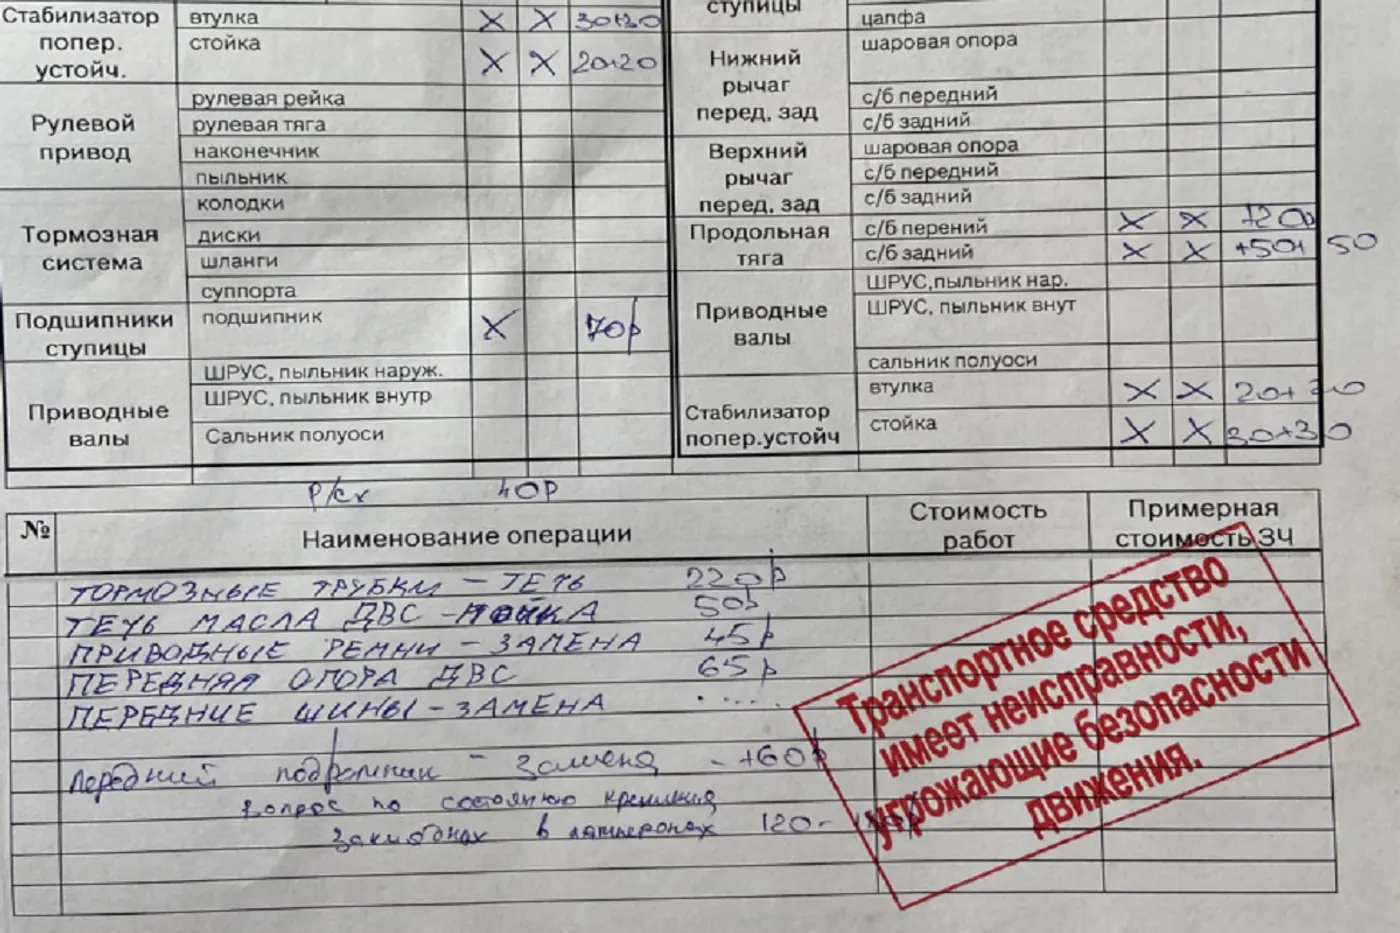 Стабилизатор попер. устойч. втулка X X 30+30
стойка X X 20+20
Рулевой привод рулевая рейка
рулевая тяга
наконечник
пыльник
Тормозная система колодки
диски
шланги
суппорта
Подшипники ступицы подшипник X 70р
Приводные валы ШРУС, пыльник наруж.
ШРУС, пыльник внутр
Сальник полуоси
ступицы цапфа
Нижний рычаг перед, зад шаровая опора
с/б передний
с/б задний
Верхний рычаг перед, зад шаровая опора
с/б передний
с/б задний
Продольная тяга с/б перений X X
с/б задний X X +50+50
Приводные валы ШРУС,пыльник нар.
ШРУС, пыльник внут
сальник полуоси
Стабилизатор попер.устойч втулка X X
стойка X X 30+30
р/ск 40р
№ Наименование операции Стоимость работ Примерная стоимость ЗЧ
ТОРМОЗНЫЕ ТРУБКИ – ТЕЧЬ 220р
ТЕЧЬ МАСЛА ДВС – МОЙКА 50р
ПРИВОДНЫЕ РЕМНИ – ЗАМЕНА 45р
ПЕРЕДНЯЯ ОПОРА ДВС 65р
ПЕРЕДНИЕ ШИНЫ – ЗАМЕНА .....
Передний подрамник – замена – +60р
Вопрос по состоянию крепления
закладных в лонжеронах 120-
Транспортное средство
имеет неисправности,
угрожающие безопасности
движения.